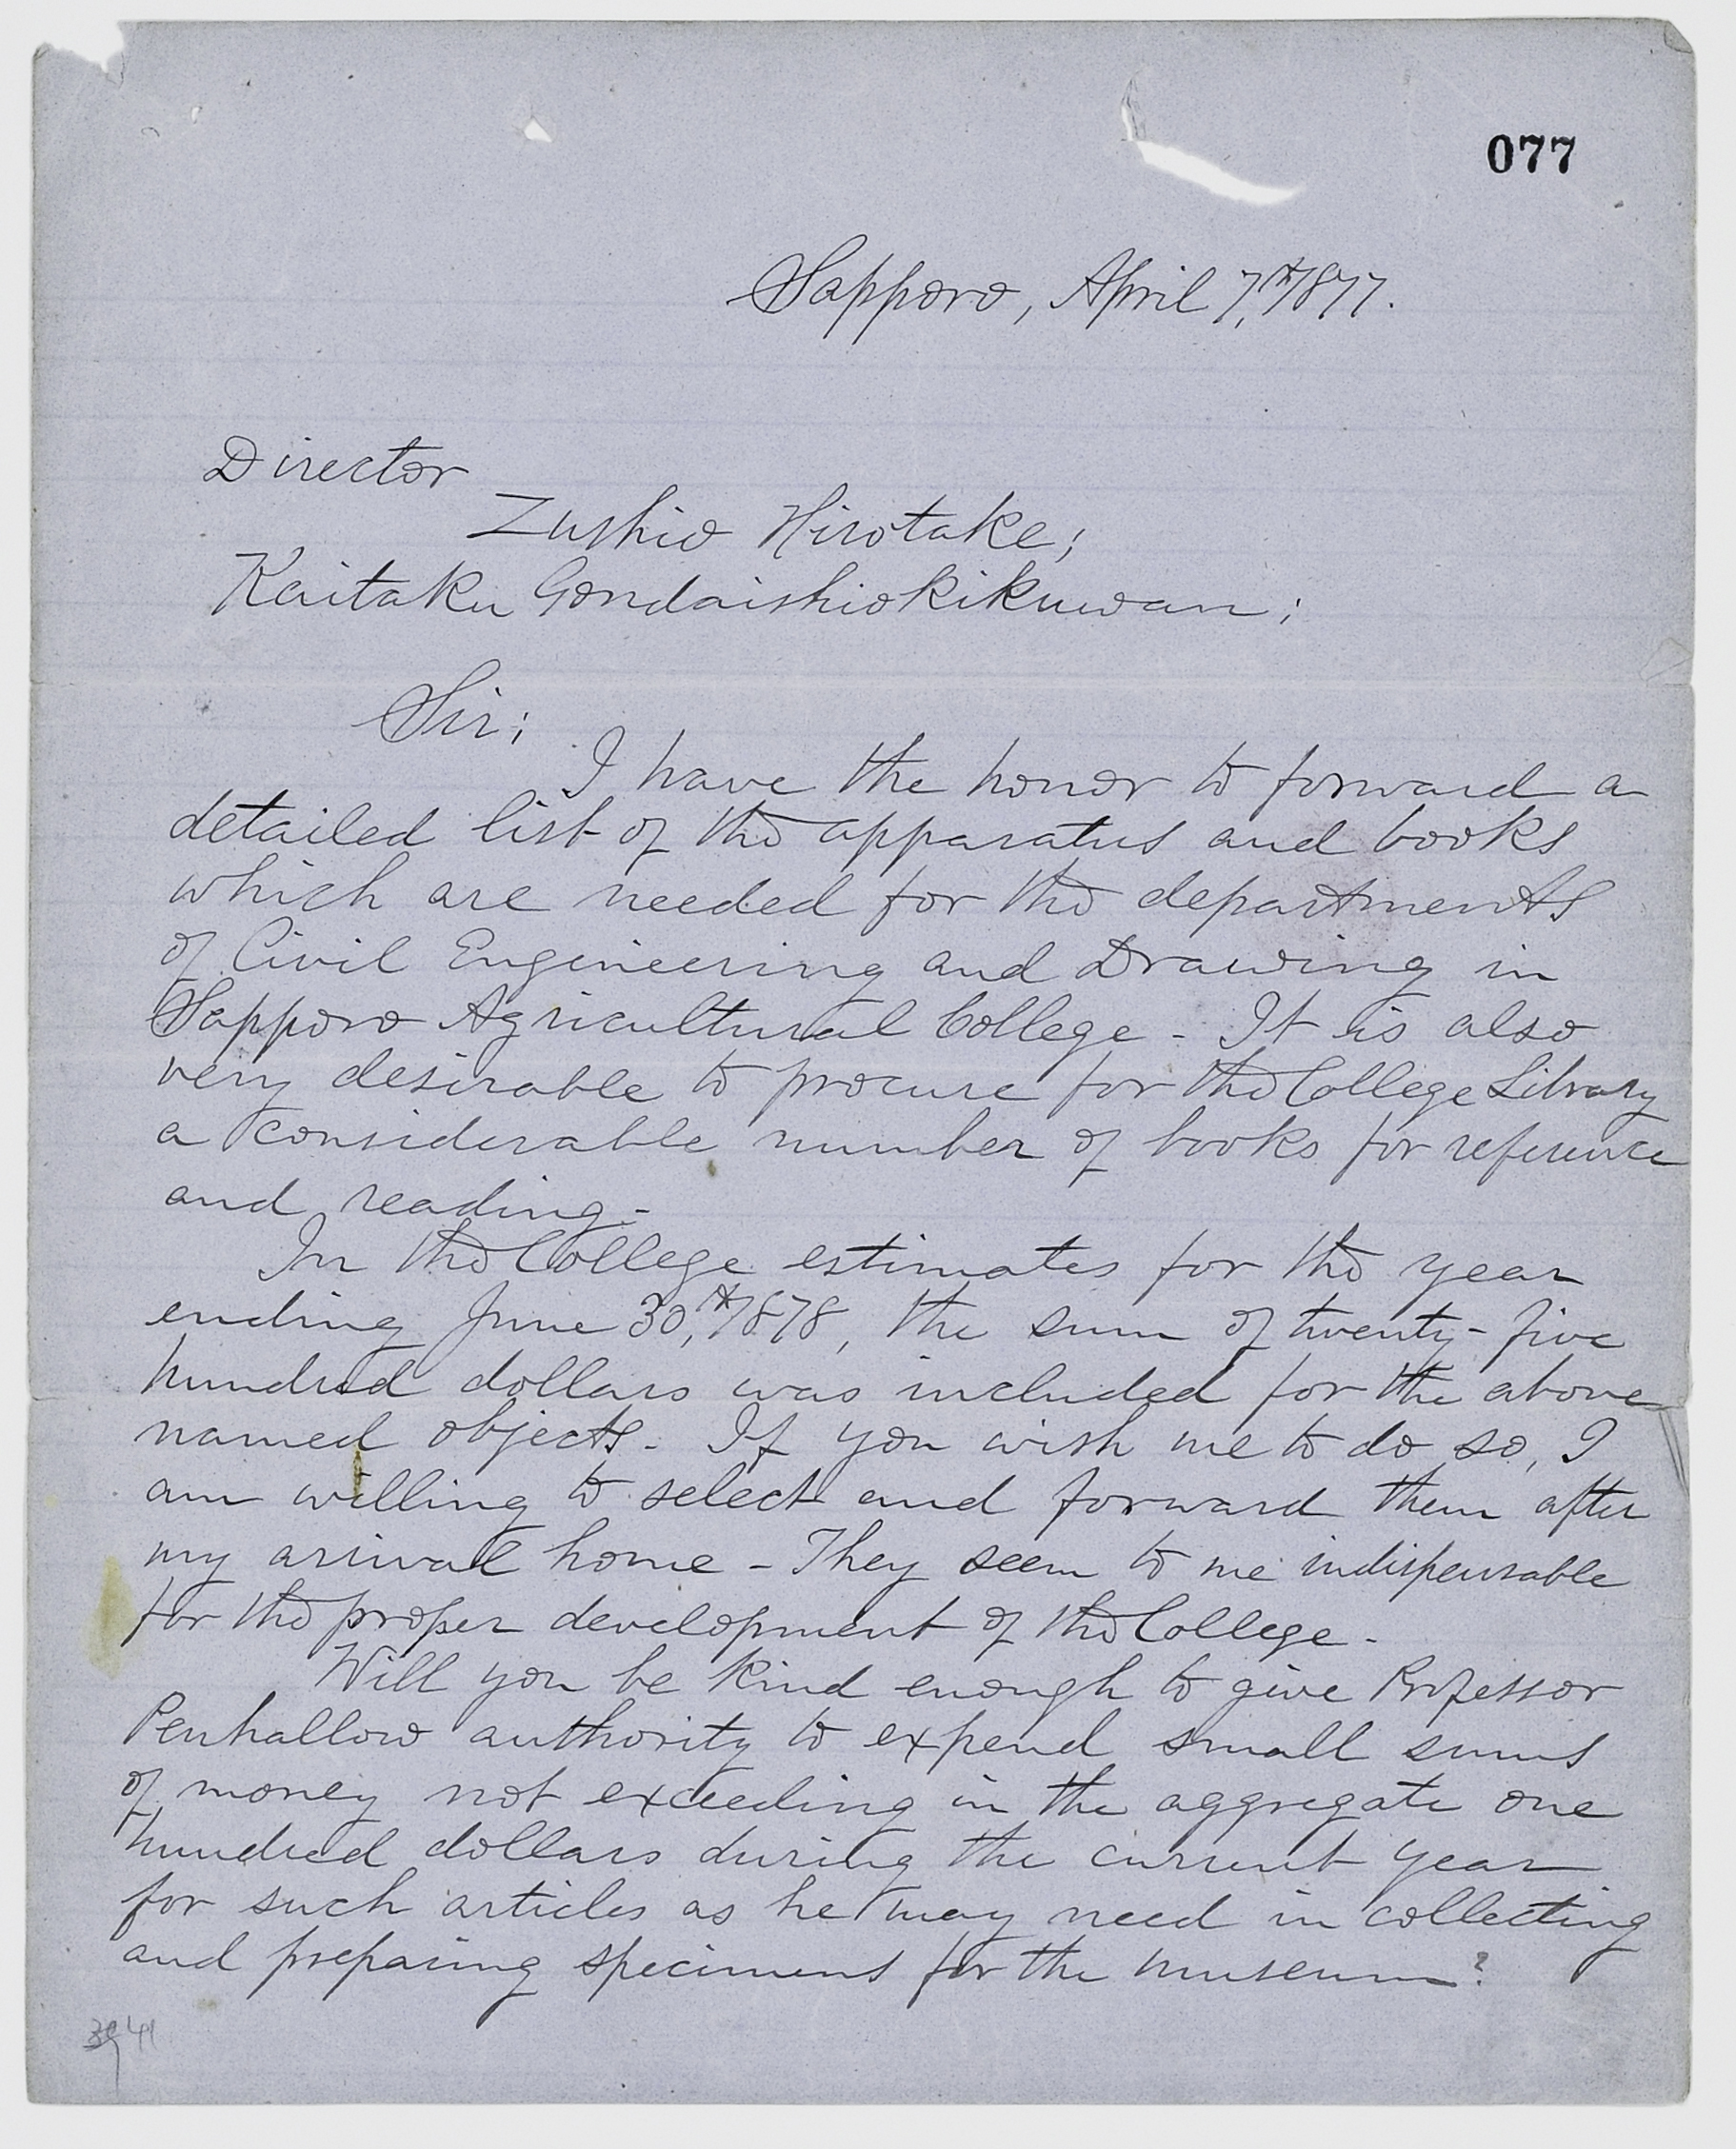 077
Sapporo, April 7,th 1877.
Director
Zushio Hirotake;
Kaitaku Gondaishiokikuwan;
Sir;
I have the honor to forward a
detailed list of the apparatus and books
which are needed for the departments
of Civil Engineering and Drawing in
Sapporo Agricultural College - It is also
very desirable to procure for the College Library
a considerable number of books for reference
and reading -
In the College estimates for the year
ending June 30,th 1878, the sum of twenty-five
hundred dollars was included for the above
named objects. If you wish me to do so, I
am willing to select and forward them after
my arrival home - They seem to me indispensable
for the proper development of the College -
Will you be kind enough to give Professor
Penhallow authority to expend small sums
of money not exceeding in the aggregate one
hundred dollars during the current year
for such articles as he may need in collecting
and preparing specimens for the museum?
41